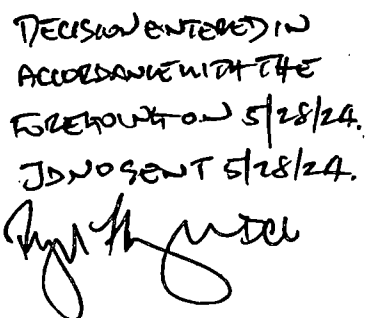 DECISION ENTERED IN
ACCORDANCE WITH THE
FOREGOING ON 5/28/24.
JDNO SENT 5/28/24.